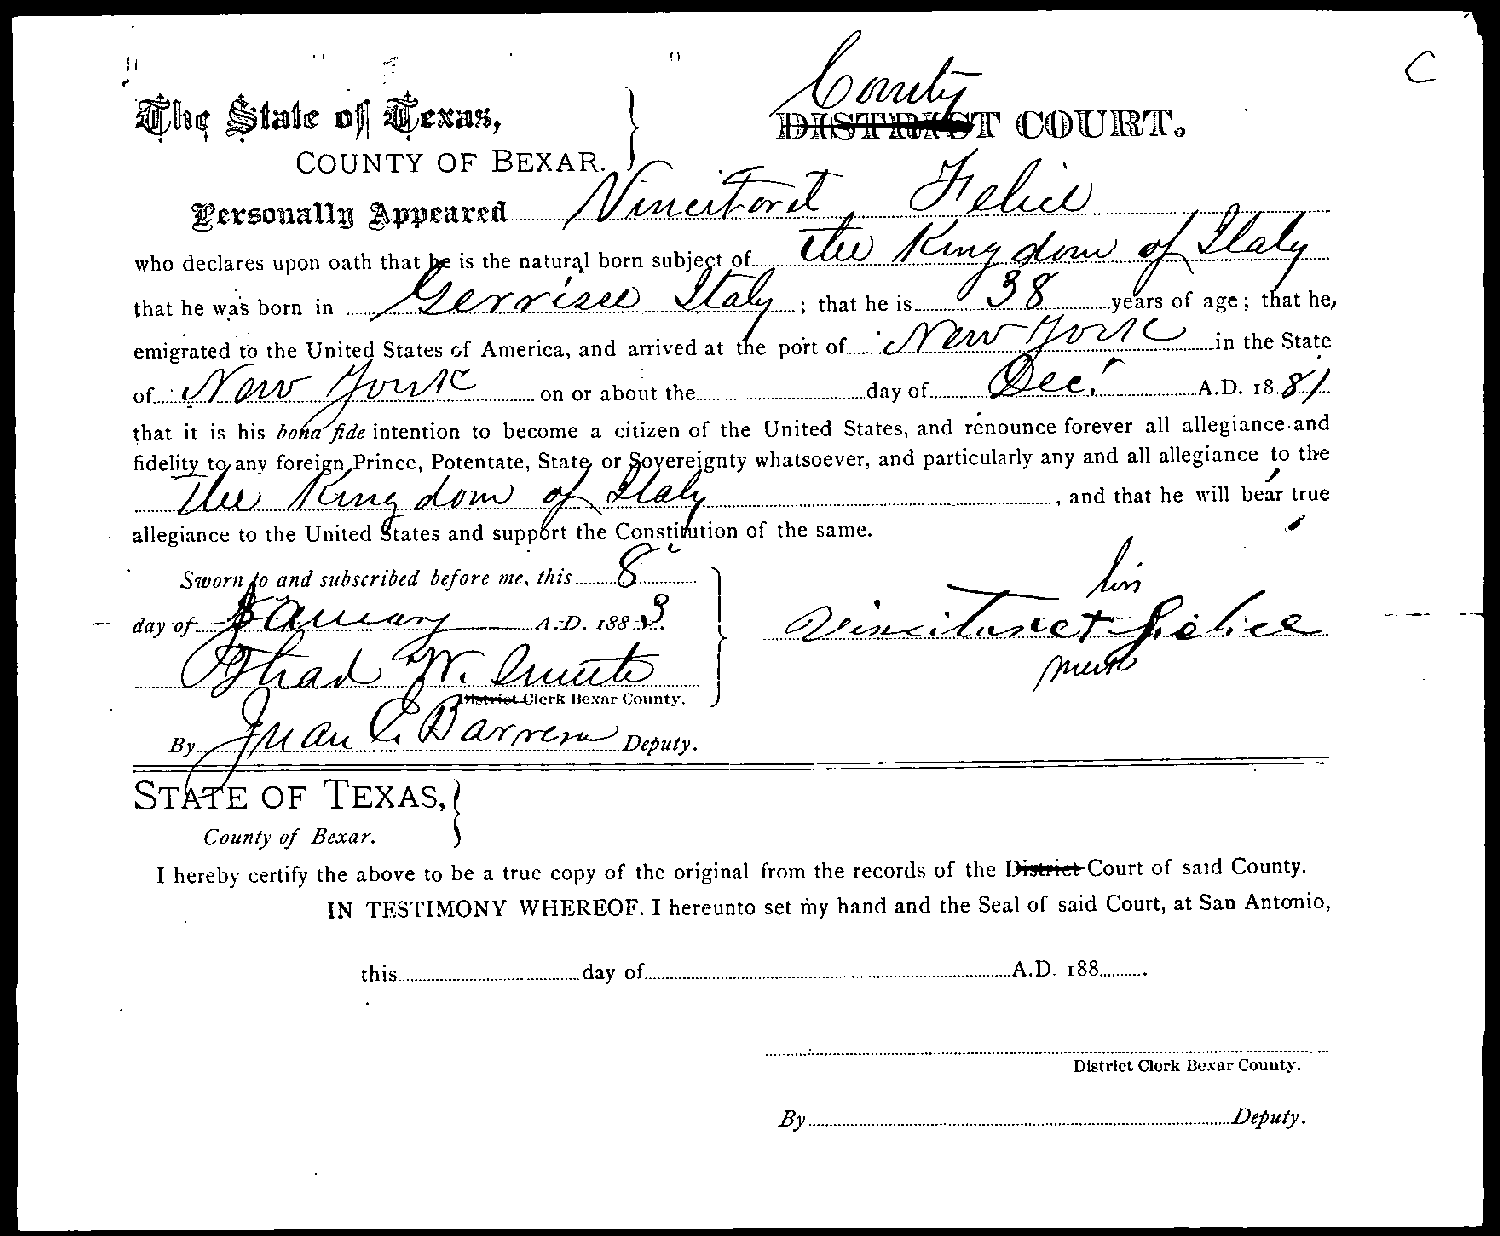 C
County
The State of Texas, } DISTRICT COURT.
COUNTY OF BEXAR.
Personally Appeared Vincitorst Felice
who declares upon oath that he is the natural born subject of the Kingdom of Italy
that he was born in Gerrisee Italy ; that he is 38 years of age; that he,
emigrated to the United States of America, and arrived at the port of New York in the State
of New York on or about the day of Dec. A.D. 1881
that it is his bona fide intention to become a citizen of the United States, and renounce forever all allegiance and
fidelity to any foreign Prince, Potentate, State or Sovereignty whatsoever, and particularly any and all allegiance to the
the Kingdom of Italy , and that he will bear true
allegiance to the United States and support the Constitution of the same.
Sworn to and subscribed before me, this 8
day of January A.D. 1883.
his
Felice
mark
Thad W.
District Clerk Bexar County.
By Juan E. Barrera Deputy.
STATE OF TEXAS, }
County of Bexar.
I hereby certify the above to be a true copy of the original from the records of the District Court of said County.
IN TESTIMONY WHEREOF, I hereunto set my hand and the Seal of said Court, at San Antonio,
this day of A.D. 188 .
District Clerk Bexar County.
By Deputy.